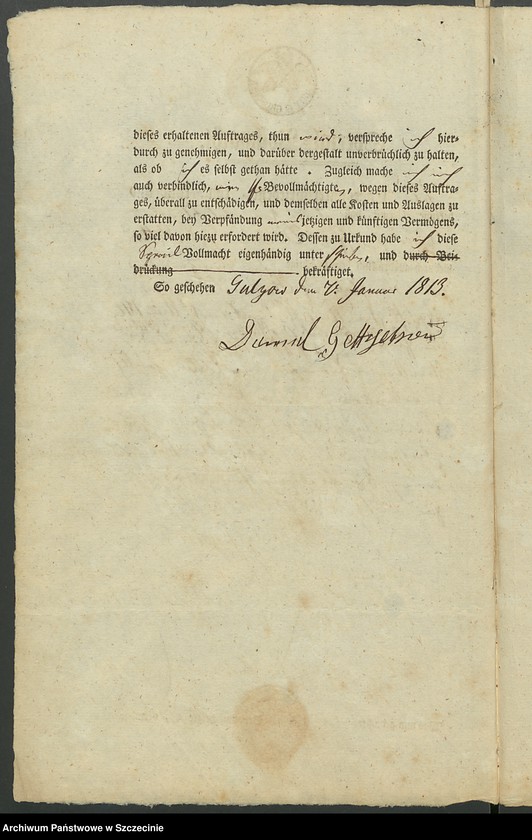 dieses erhaltenen Auftrages, thun wird, verspreche ich hier-
durch zu genehmigen, und darüber dergestalt unverbrüchlich zu halten,
als ob ich es selbst gethan hätte. Zugleich mache ich mich
auch verbindlich, Bevollmächtigten, wegen dieses Auftra-
ges, überall zu entschädigen, und demselben alle Kosten und Auslagen zu
erstatten, bey Verpfändung jetzigen und künftigen Vermögens,
so viel davon hiezu erfordert wird. Dessen zu Urkund habe ich diese
Vollmacht eigenhändig unterschrieben, und durch Bei-
drückung bekräftiget.
So geschehen Gulzow den 7. Januar 1813.
Daniel
Archiwum Państwowe w Szczecinie